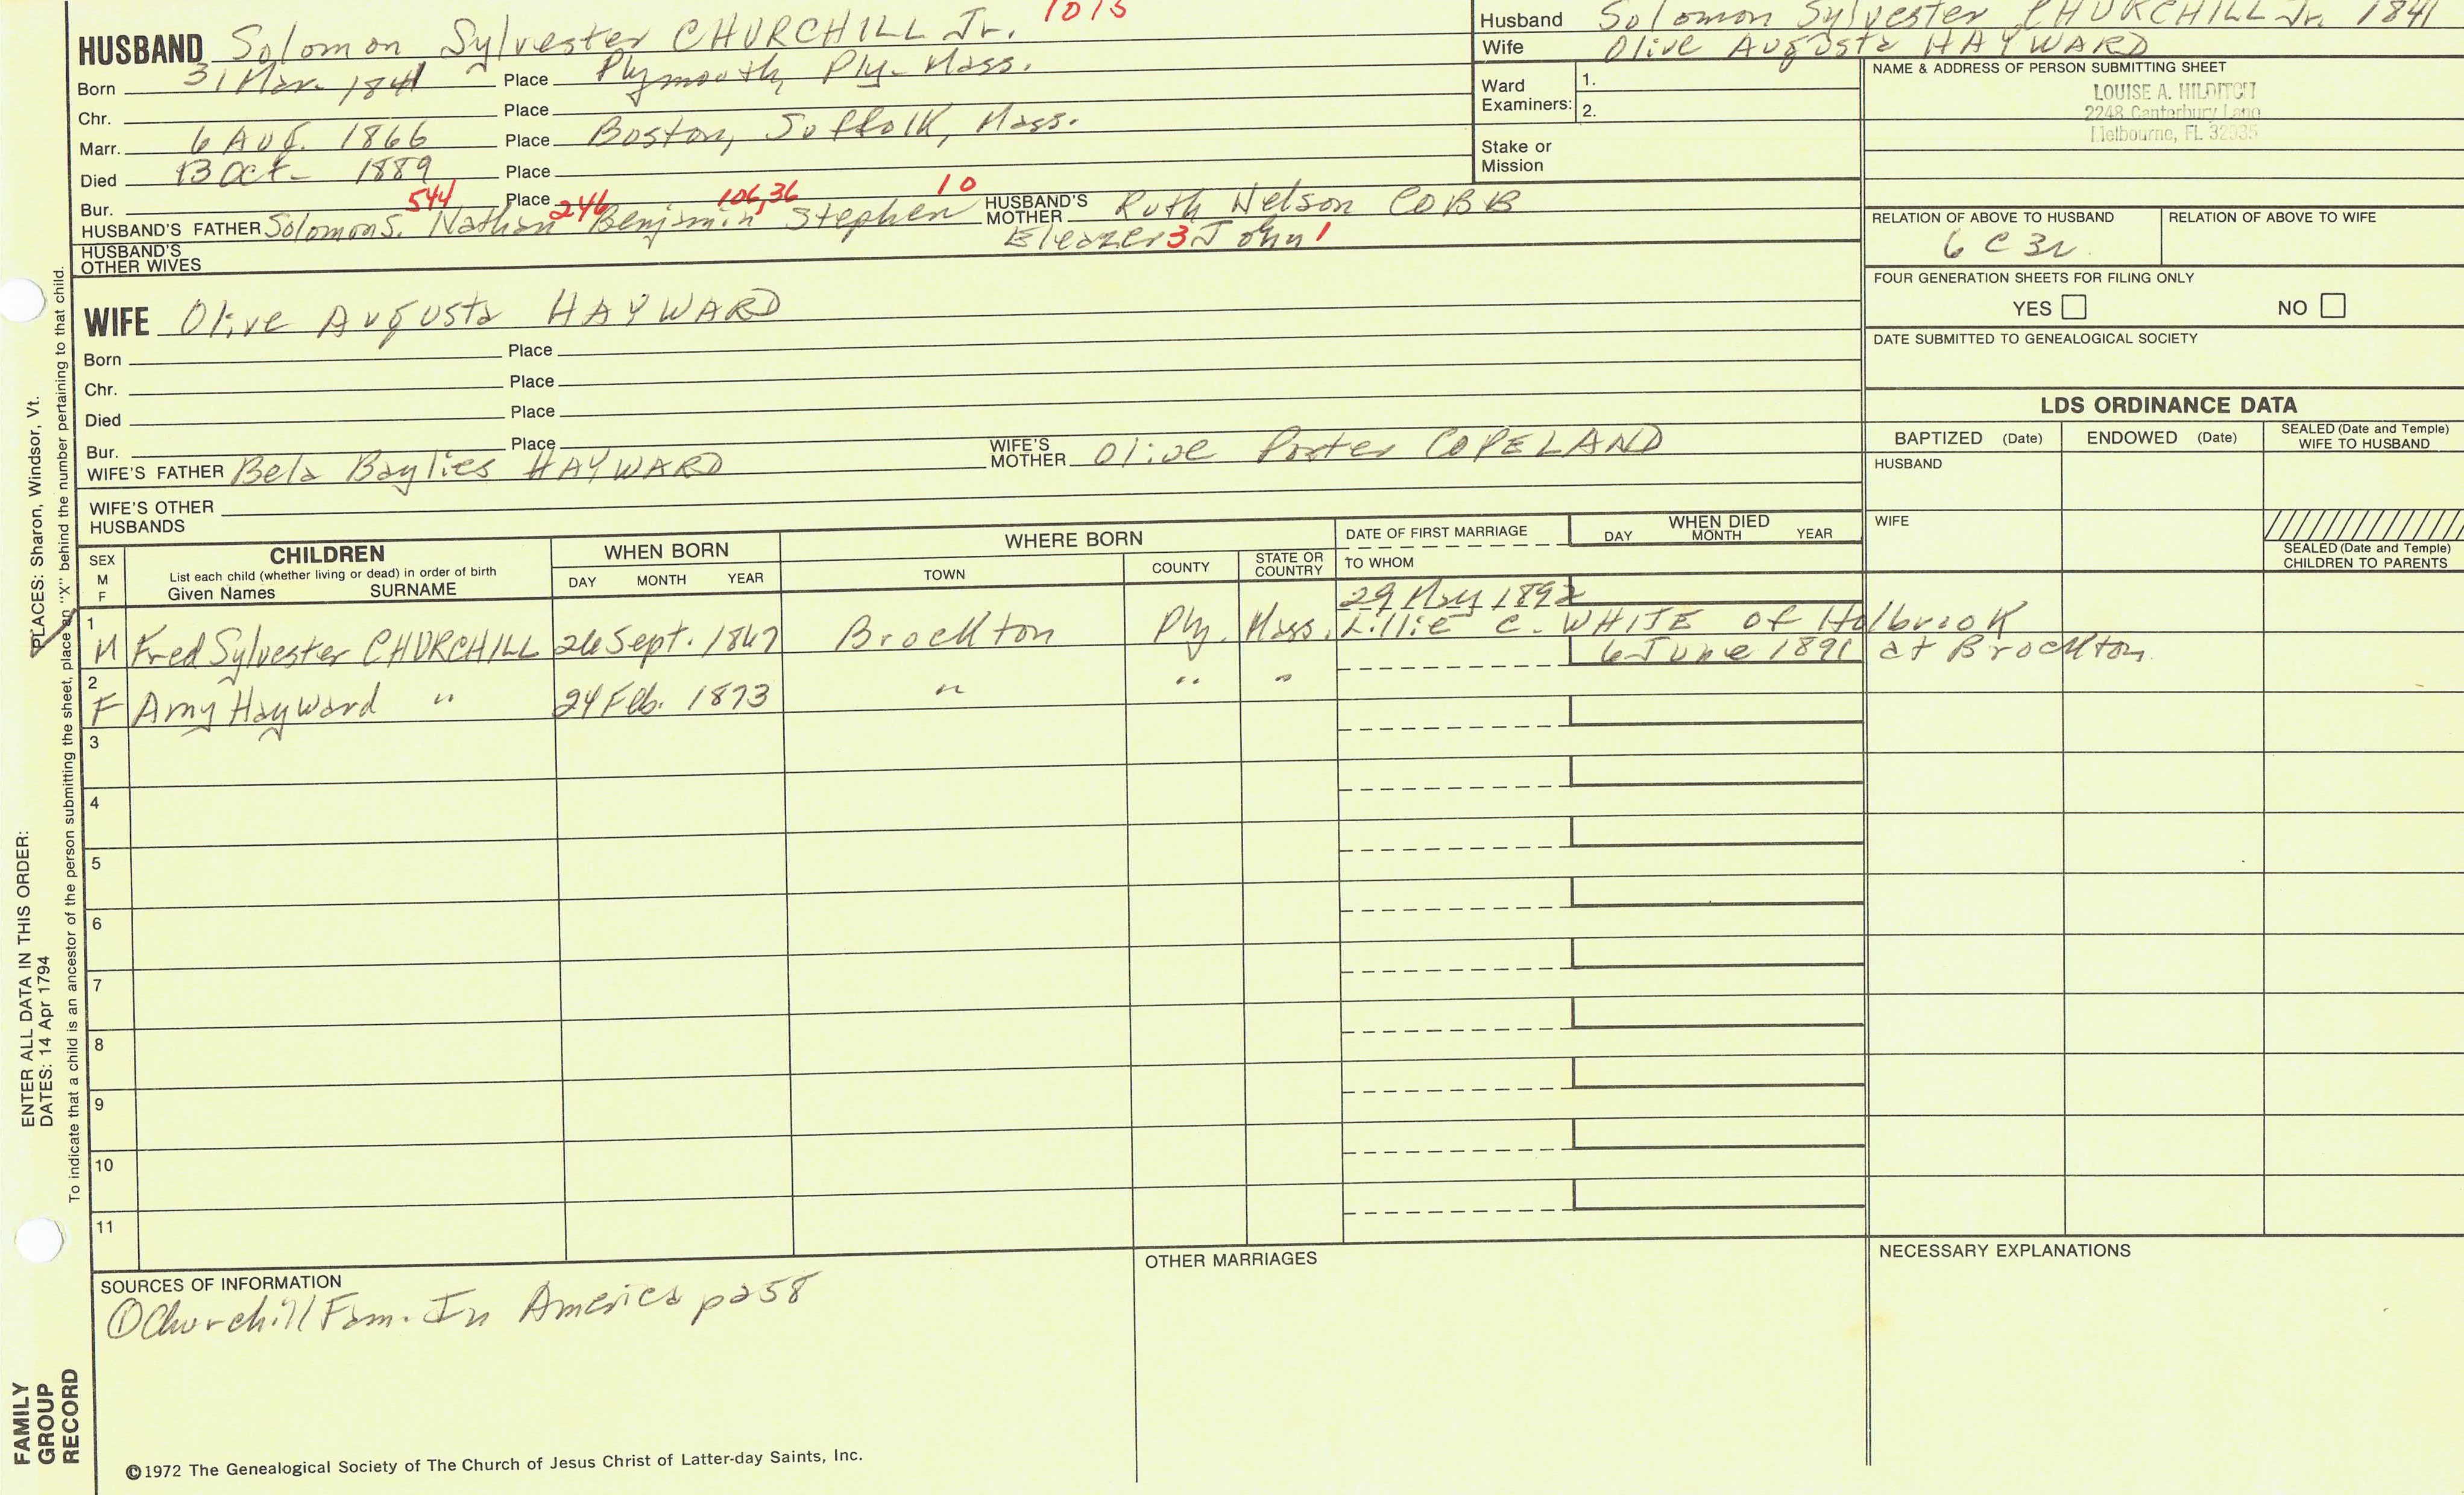 HUSBAND Solomon Sylvester CHURCHILL Jr. 1015
Born 31 Mar. 1841 Place Plymouth, Ply- Mass.
Chr. Place
Marr. 6 Aug. 1866 Place Boston, Suffolk, Mass.
Died 13 Oct- 1889 Place
Bur. Place
544 246 106,36 10
HUSBAND'S FATHER Solomon S. Nathan Benjamin Stephen HUSBAND'S MOTHER Ruth Nelson COBB
Eleazer 3 John 1
HUSBAND'S OTHER WIVES
WIFE Olive Augusta HAYWARD
Born Place
Chr. Place
Died Place
Bur. Place
WIFE'S FATHER Bela Baylies HAYWARD WIFE'S MOTHER Olive Porter COPELAND
WIFE'S OTHER HUSBANDS
Husband Solomon Sylvester CHURCHILL Jr. 1841
Wife Olive Augusta HAYWARD
Ward Examiners: 1.
2.
Stake or Mission
NAME & ADDRESS OF PERSON SUBMITTING SHEET
LOUISE A. HILDITCH
2248 Canterbury Lane
Melbourne, FL 32935
RELATION OF ABOVE TO HUSBAND RELATION OF ABOVE TO WIFE
6 C 3r
FOUR GENERATION SHEETS FOR FILING ONLY
YES NO
DATE SUBMITTED TO GENEALOGICAL SOCIETY
LDS ORDINANCE DATA
BAPTIZED (Date) ENDOWED (Date) SEALED (Date and Temple) WIFE TO HUSBAND
HUSBAND
WIFE
SEALED (Date and Temple) CHILDREN TO PARENTS
SEX M F
CHILDREN
List each child (whether living or dead) in order of birth
Given Names SURNAME
WHEN BORN
DAY MONTH YEAR
WHERE BORN
TOWN COUNTY STATE OR COUNTRY
DATE OF FIRST MARRIAGE
TO WHOM
WHEN DIED
DAY MONTH YEAR
29 May 1892
1 M Fred Sylvester CHURCHILL 26 Sept. 1867 Brockton Ply. Mass. Lillie C. WHITE of Holbrook
6 June 1891 at Brockton
2 F Amy Hayward " 24 Feb. 1873 " " "
3
4
5
6
7
8
9
10
11
SOURCES OF INFORMATION
① Churchill Fam. In America p258
OTHER MARRIAGES
NECESSARY EXPLANATIONS
©1972 The Genealogical Society of The Church of Jesus Christ of Latter-day Saints, Inc.
FAMILY GROUP RECORD
ENTER ALL DATA IN THIS ORDER:
DATES: 14 Apr 1794
PLACES: Sharon, Windsor, Vt.
To indicate that a child is an ancestor of the person submitting the sheet, place an "X" behind the number pertaining to that child.